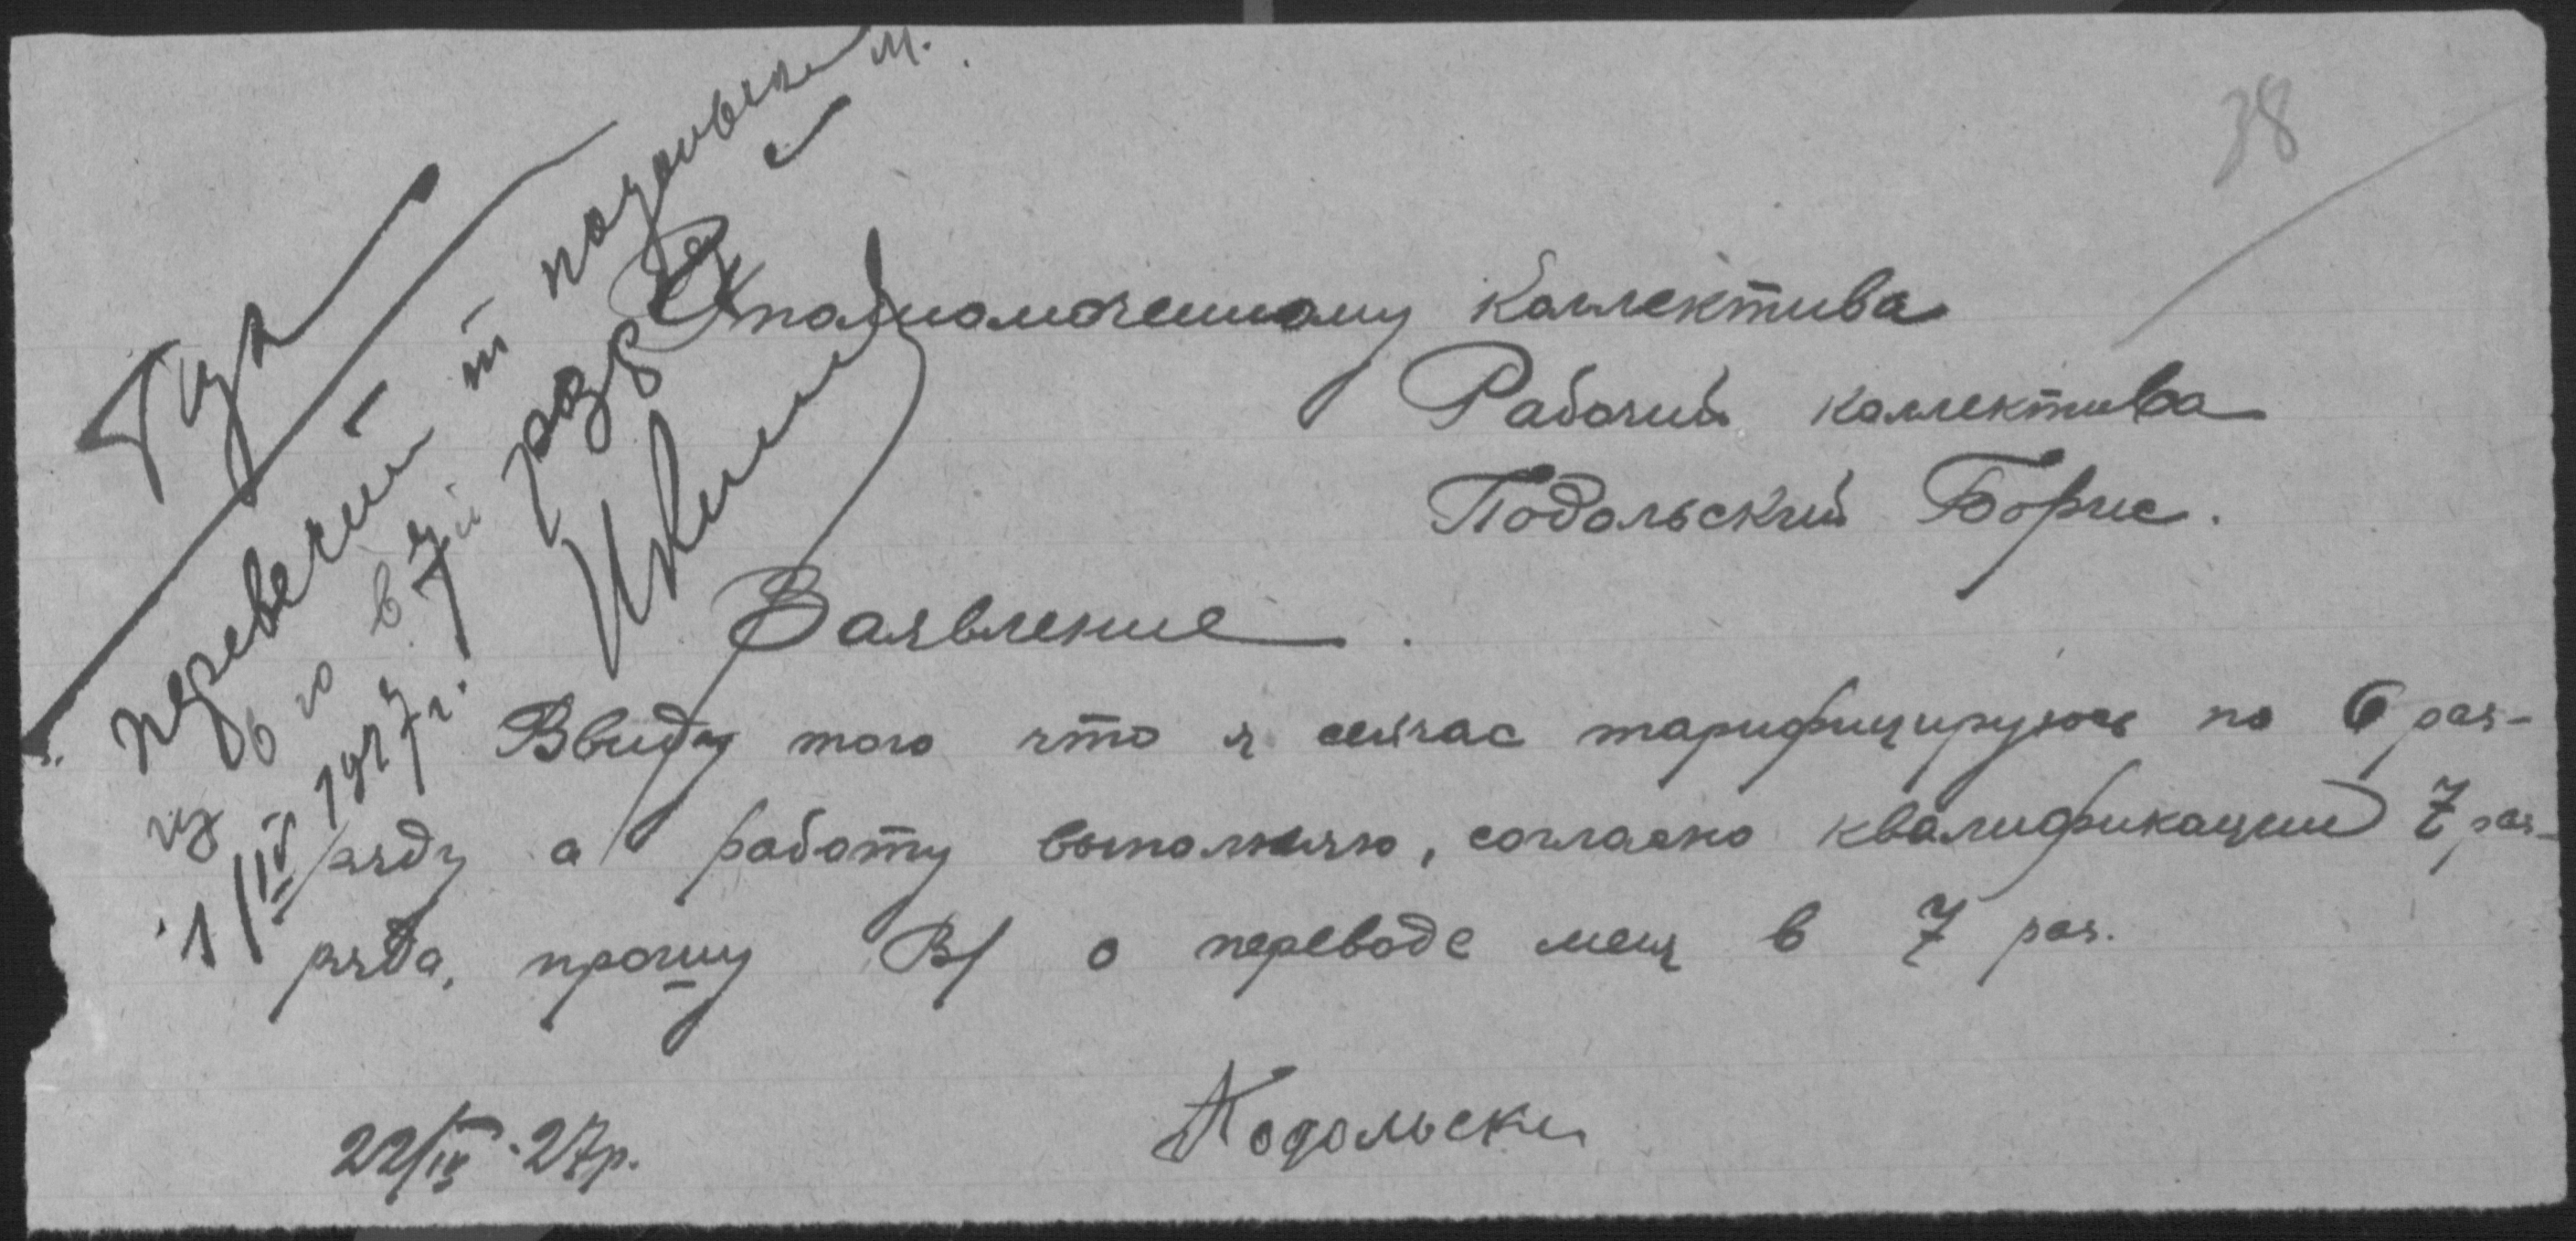 38
Уполномоченному коллектива
Рабочий коллектива
Подольский Борис.
Заявление.
Ввиду того что я сейчас тарифицируюсь по 6 раз-
ряду а работу выполняю, согласно квалификации 7 раз-
ряда, прошу В/ о переводе меня в 7 раз.
22/IV-27р.
Подольски
перевести т Подольск
из 6 го в 7й разряд с
1/IV 1927 г.